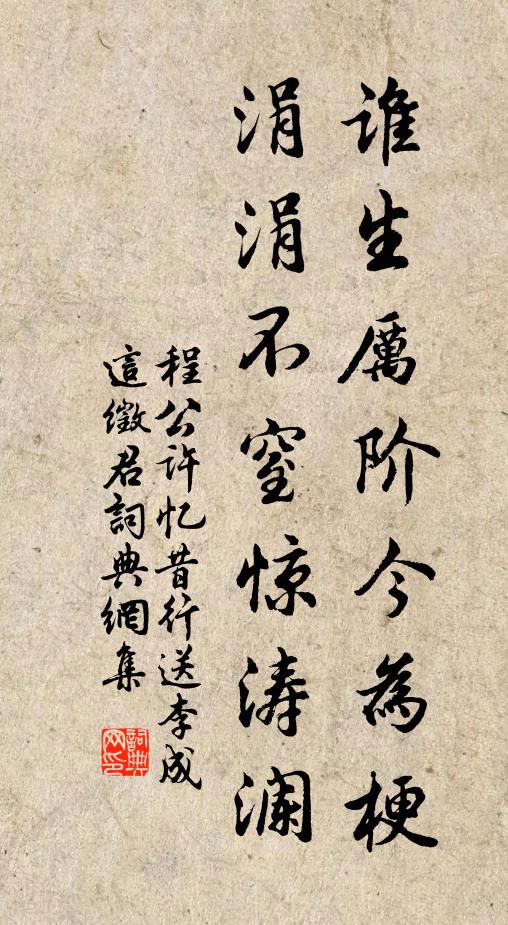 谁生厲阶今為梗
涓涓不窒惊涛澜
程公许忆昔行送李成
這徵君詞典網集
詞典
网印